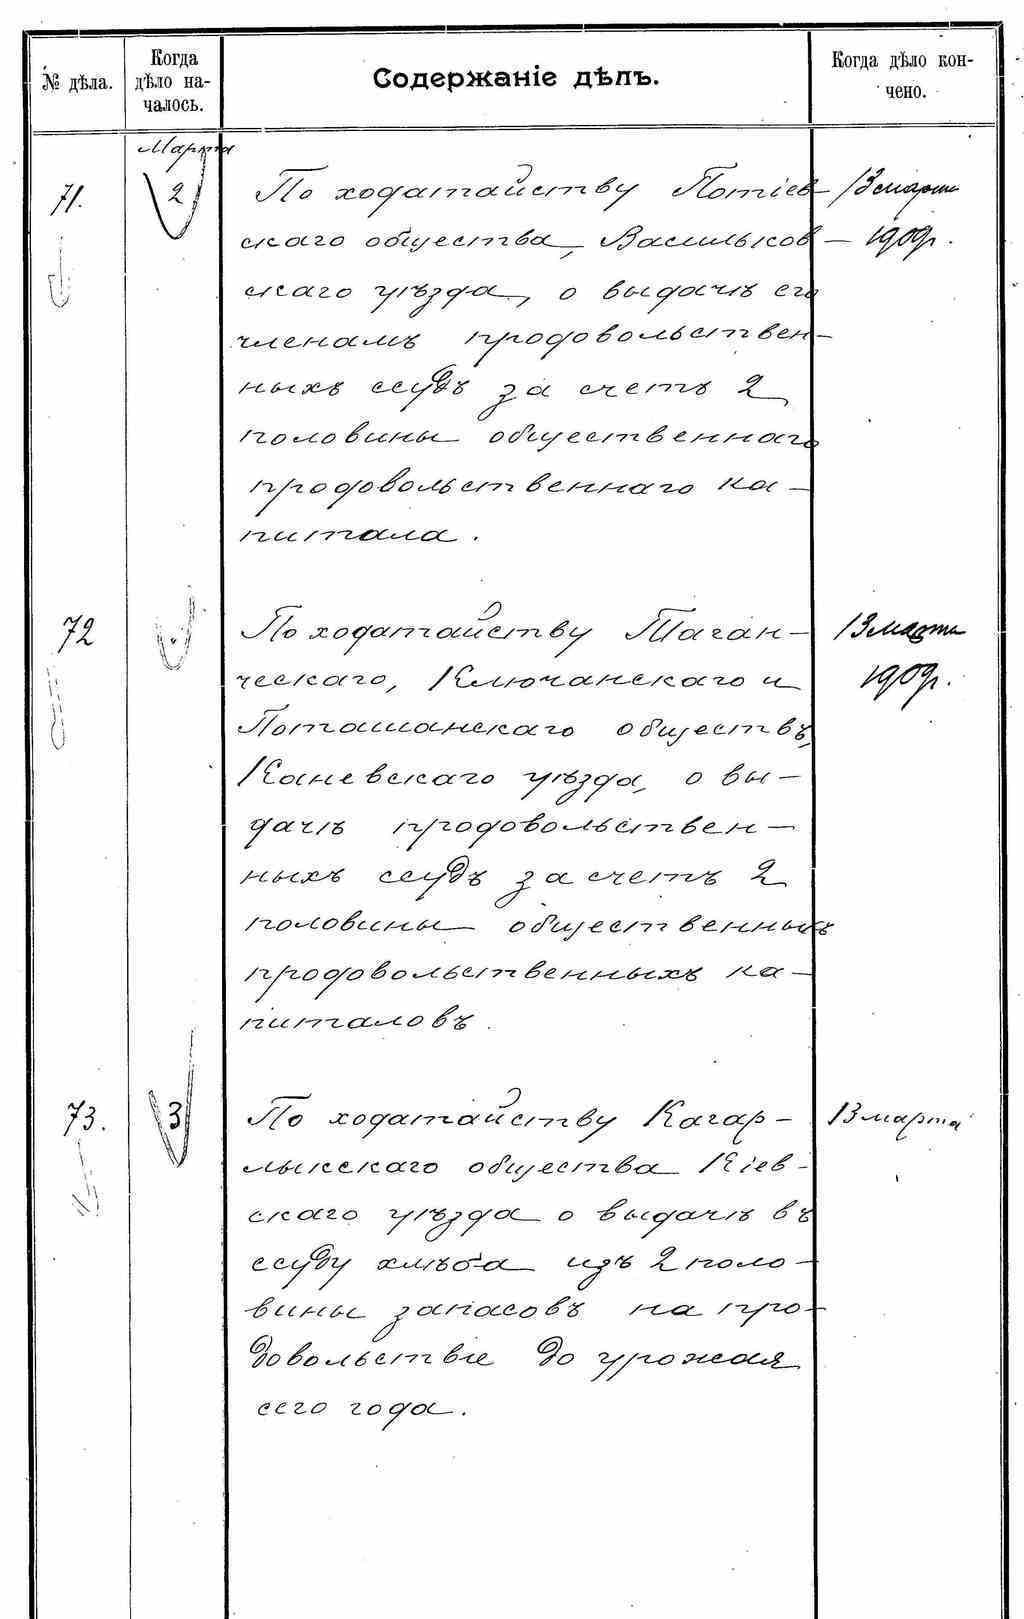 № дѣла.
Когда
дѣло на-
чалось.
Содержаніе дѣлъ.
Когда дѣло кон-
чено.
Марта
71.
2
По ходатайству Потіев-
скаго общества, Васильков-
скаго уѣзда, о выдачѣ его
членамъ продовольствен-
ныхъ ссудъ за счетъ 2
половины общественнаго
продовольственнаго ка-
питала.
13 марта
1909г.
72
По ходатайству Таган-
ческаго, Ключанскаго и
Поташанскаго обществъ,
Каневскаго уѣзда, о вы-
дачѣ продовольствен-
ныхъ ссудъ за счетъ 2
половины общественныхъ
продовольственныхъ ка-
питаловъ.
13 марта
1909г.
73.
3
По ходатайству Кагар-
лыкскаго общества Кіев-
скаго уѣзда о выдачѣ въ
ссуду хлѣба изъ 2 поло-
вины запасовъ на про-
довольствіе до урожая
сего года.
13 марта